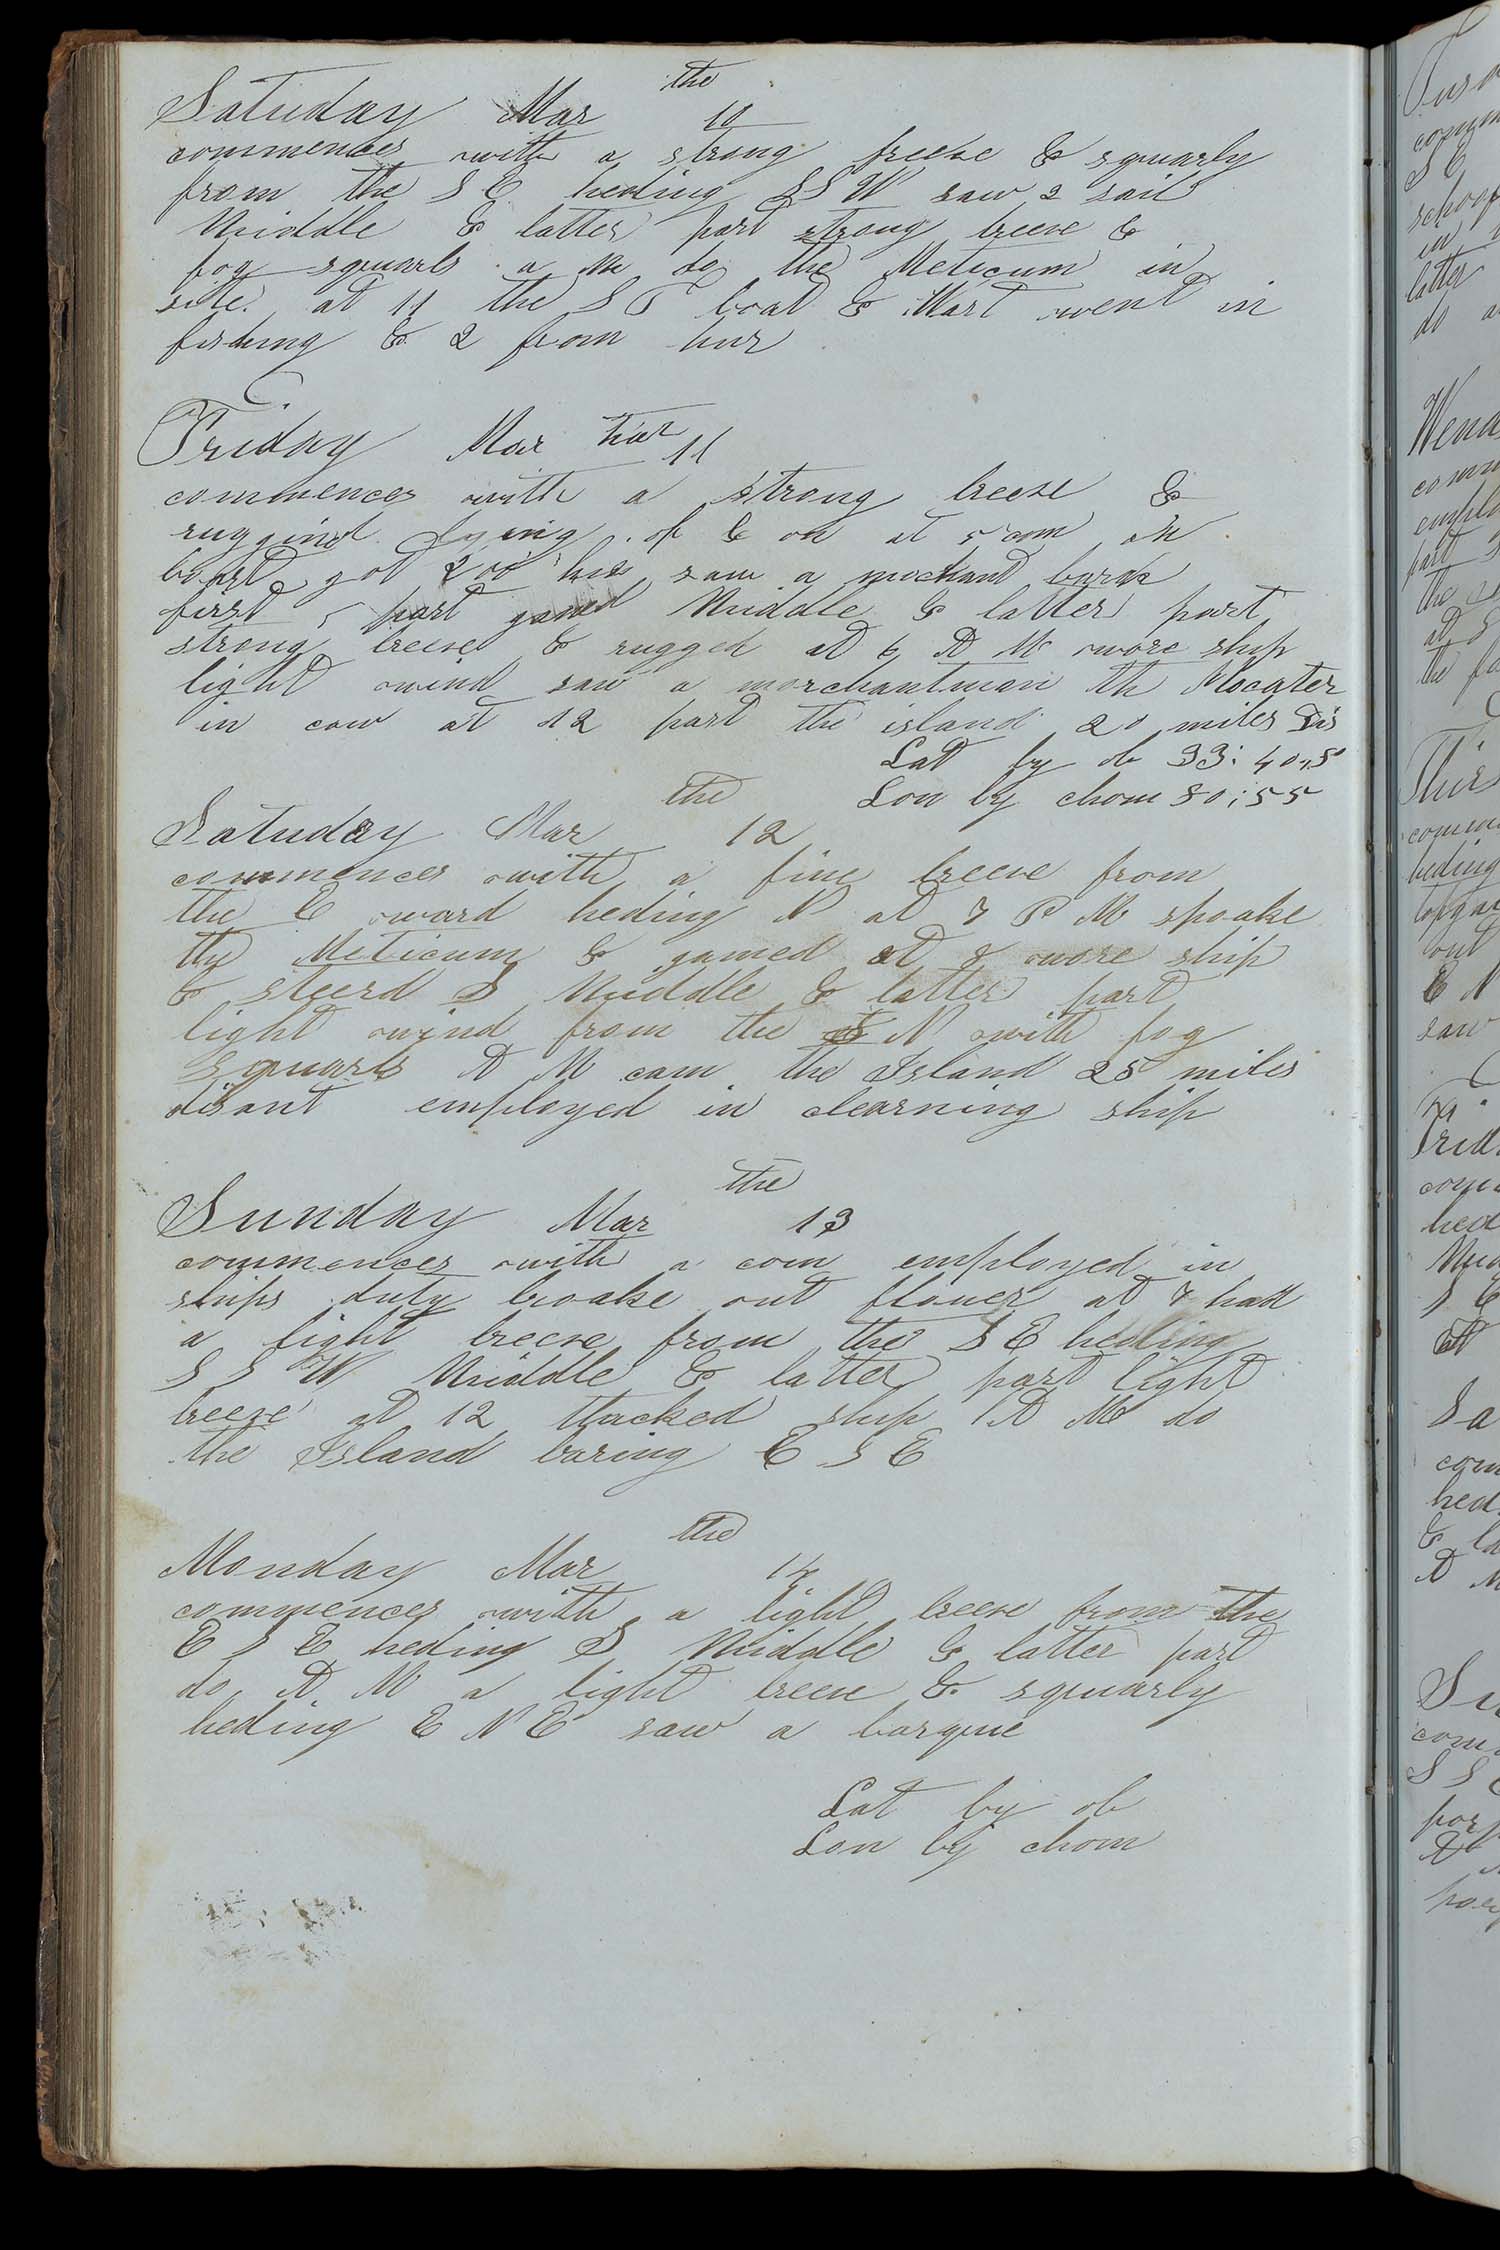 Satuday Mar the 10
commences with a strong breese & squarly
from the S E heding S S W saw 2 sails
Middle & latter part strong breese &
fog squarls a m do the Meticum in
site at 11 the S boat & Wart went in
fishing & 2 from hur
Friday Mar the 11
commences with a strong breese &
ruggind lying of & on at 5 com on
boart got 200 fish saw a mochant bark
first part gamed Middle & latter part
strong breese & rugged at 6 A M wore ship
light wind saw a morchantman th Mocater
in cow at 12 part the island 20 miles Dis
Lat by ob 33: 40,5
Lon by chom 80:55
Satuday Mar the 12
commences with a fine breese from
the E ward heding N at 7 P M spoake
the Meticum & gamed at 8 wore ship
& steerd S Middle & latter part
light wind from the N with fog
squarls A M cam the Island 25 miles
disant employed in clearning ship
Sunday Mar the 13
commences with a com employed in
ships duty broake out flouer at 7 had
a light breese from the S E heding
S S W Middle & latter part light
breese at 12 thacked ship A M do
the Island baring E S E
Monday Mar the 14
commences with a light breese from the
E S E heding S Middle & latter part
do A M a light breese & squarly
heding E N E saw a barque
Lat by ob
Lon by chom